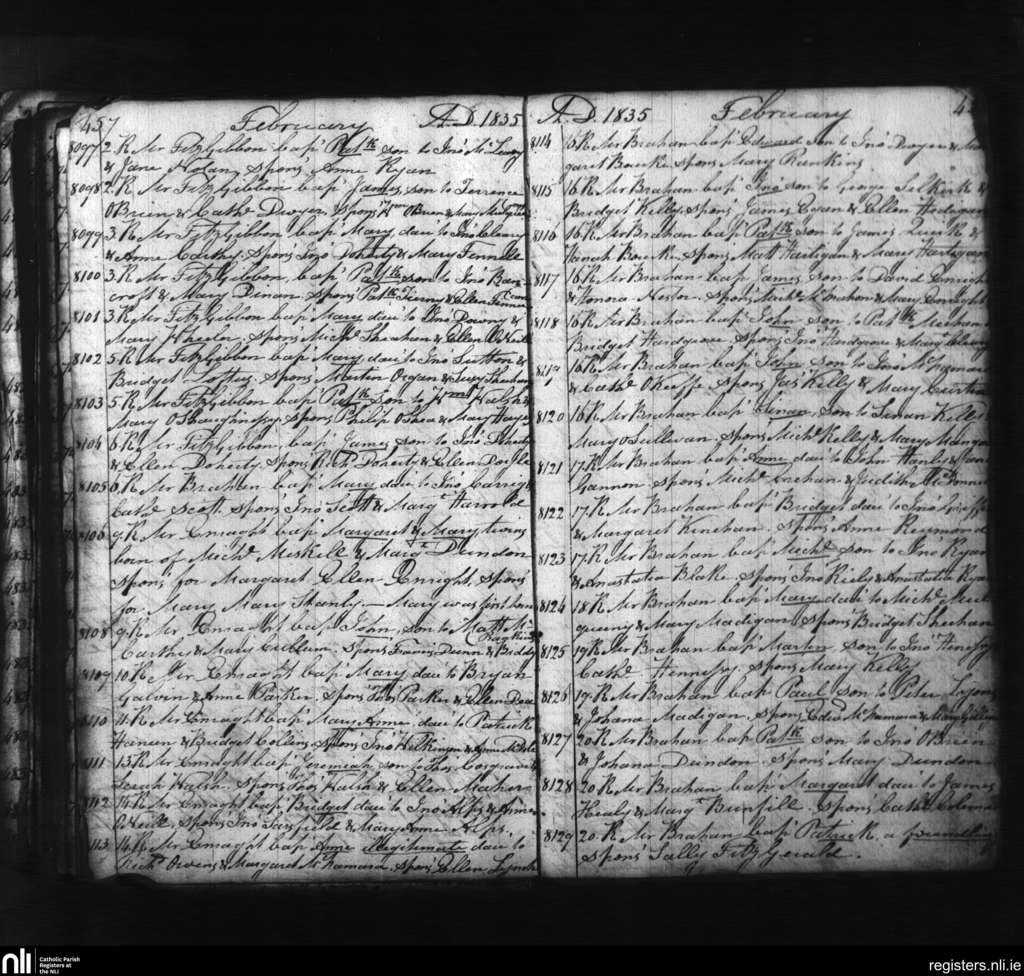 457 February A.D. 1835
8097 2 R. Mr FitzGibbon bapd Patk son to Jno Mc
& Jane Nolan, spons Anne Ryan
8098 2 R. Mr FitzGibbon bapd James son to Terrence
OBrien & Cathe Dwyer, spons Wm OBrien & Mary
8099 3 R. Mr FitzGibbon bapd Mary dau to Jno Cleary
& Anne Carthy. Spons Jno Doherty & Mary Fennell
8100 3 R. Mr FitzGibbon, bapd Patk son to Jno Ban-
croft & Mary Dinan Spons Patk Tierny & Ellen
8101 3 R. Mr FitzGibbon bapd Mary dau to Jno Downy &
Mary Wheeler. Spons Miche Sheahan & Ellen ONeill
8102 5 R. Mr FitzGibbon bapd Mary dau to Jno Sutton &
Bridget Loftus. Spons Martin Organ & Lucy Sheehan
8103 5 R. Mr FitzGibbon bapd Patk son to Wm Walsh &
Mary OShaughnessy. Spons Philip OShea & Mary Hayes
8104 6 R. Mr FitzGibbon, bapd James son to Jno Doherty
& Ellen Doherty. Spons Richd Doherty & Ellen Doyle
8105 6 R. Mr Brahan bapd Mary dau to Jno Carrig &
Cathe Scott. Spons Jno Scott & Margt Harrold
8106 9 R. Mr Enraght bapd Margaret & Mary twins
born of Miche Meskell & Margt Dundon
Spons for Margaret Ellen Enright, Spons
for Mary Mary Shanly. — Mary was first born
8108 9 R. Mr Enraght bapd John, son to Matt Mc
Carthy & Mary Cribbun. Spons Francis Dunn & Biddy
8109 10 R. Mr Enraght bapd Mary dau to Bryan
Galvin & Anne Parker. Spons Thos Parker & Ellen
8110 11 R. Mr Enraght bapd Mary Anne dau to Patrick
Hanan & Bridget Collins Spons Jno Wilkinson & Anne
8111 13 R. Mr Enraght bapd Jeremiah son to Thos Cosgrave &
Sarah Walsh. Spons Thos Walsh & Ellen Maher
8112 14 R. Mr Enraght bapd Bridget dau to Jno Alps & Anne
ONeill, Spons Jno Sarsfield & Mary Anne Alps.
8113 14 R. Mr Enraght bapd Anne illegitimate dau to
Richd Owens & Margaret McNamara. Spons Ellen Lynch
A.D. 1835 February
8114 15 R. Mr Brahan bapd Edward son to Jno Dwyer & Mar
garet Bourke spons Mary Rankins
8115 16 R. Mr Brahan bapd Jno son to George Selkirk &
Bridget Kelly. spons James Egan & Ellen Hartigan
8116 16 R. Mr Brahan bapd Patk son to James Quirk &
Hanah Bourke. Spons Matt Hartigan & Mary Hartigan
8117 16 R. Mr Brahan bapd James son to David Enright
& Honora Nestor. Spons Miche McMahon & Mary Enright
8118 16 R. Mr Brahan bapd John son to Patk Meehan &
Bridget Hardgrove. Spons Jno Hardgrove & Mary Cleary
8119 16 R. Mr Brahan bapd John son to Jno McNamara
& Cathe OKeeffe Spons Jas Kelly & Mary Curtin
8120 16 R. Mr Brahan bapd Simon, Son to Simon Kelly &
Mary OSullivan. Spons Miche Kelly & Mary Mangan
8121 17 R. Mr Brahan bapd Anne dau to John Hanly & Jane
Gannon. Spons Miche Crehan & Judith McDonnell
8122 17 R. Mr Brahan bapd Bridget dau to Jno Griffin
& Margaret Kinehan. Spons Anne Raymond
8123 17 R. Mr Brahan bapd Miche son to Jno Ryan
& Anastatia Blake. Spons Jno Kiely & Anastatia Ryan
8124 18 R. Mr Brahan bapd Mary dau to Miche Mul
queeny & Mary Madigan. Spons Bridget Sheehan
8125 19 R. Mr Brahan bapd Martin son to Jno Henessy
Cathe Hennessy. spons Mary Kelly
8126 19 R. Mr Brahan bapd Paul son to Peter Lyons
& Johana Madigan. Spons Edwd McNamara & Mary Collins
8127 20 R. Mr Brahan bapd Patk son to Jno OBrien
& Johana Dundon. Spons Mary Dundon
8128 20 R. Mr Brahan bapd Margaret dau to James
Healy & Margt Bunfill. Spons Cathe
8129 20 R. Mr Brahan bapd Patrick a foundling
Spons Sally FitzGerald.
nli Catholic Parish
Registers at
the NLI
registers.nli.ie